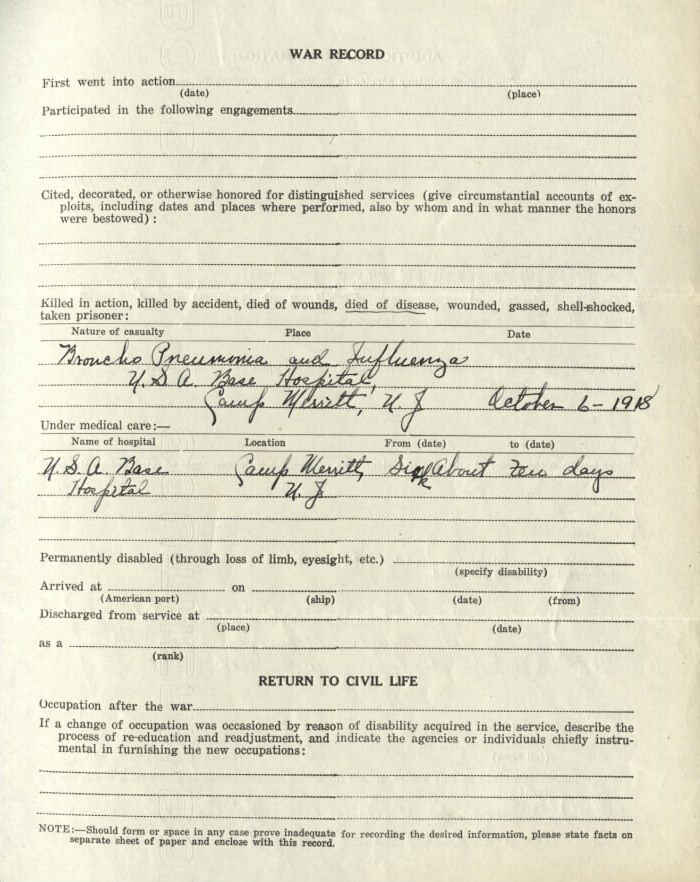 WAR RECORD
First went into action
(date) (place)
Participated in the following engagements
Cited, decorated, or otherwise honored for distinguished services (give circumstantial accounts of ex-
ploits, including dates and places where performed, also by whom and in what manner the honors
were bestowed) :
Killed in action, killed by accident, died of wounds, died of disease, wounded, gassed, shell-shocked,
taken prisoner:
Nature of casualty Place Date
Broncho Pneumonia and Influenza
U.S.A. Base Hospital,
Camp Merritt, N. J October 6-1918
Under medical care:—
Name of hospital Location From (date) to (date)
U.S.A. Base Camp Merritt, Sick About ten days
Hospital N. J
Permanently disabled (through loss of limb, eyesight, etc.)
(specify disability)
Arrived at on
(American port) (ship) (date) (from)
Discharged from service at
(place) (date)
as a
(rank)
RETURN TO CIVIL LIFE
Occupation after the war
If a change of occupation was occasioned by reason of disability acquired in the service, describe the
process of re-education and readjustment, and indicate the agencies or individuals chiefly instru-
mental in furnishing the new occupations:
NOTE:—Should form or space in any case prove inadequate for recording the desired information, please state facts on
separate sheet of paper and enclose with this record.